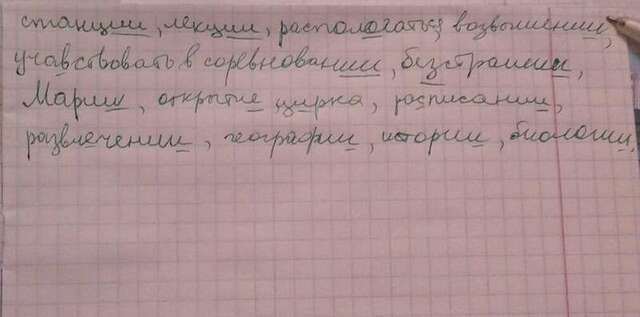 станции, лекции, распологаться возвышении,
учавствовать в соревновании, безстрашии,
Марии, открытие цирка, расписании,
развлечении, географии, истории, биологии.